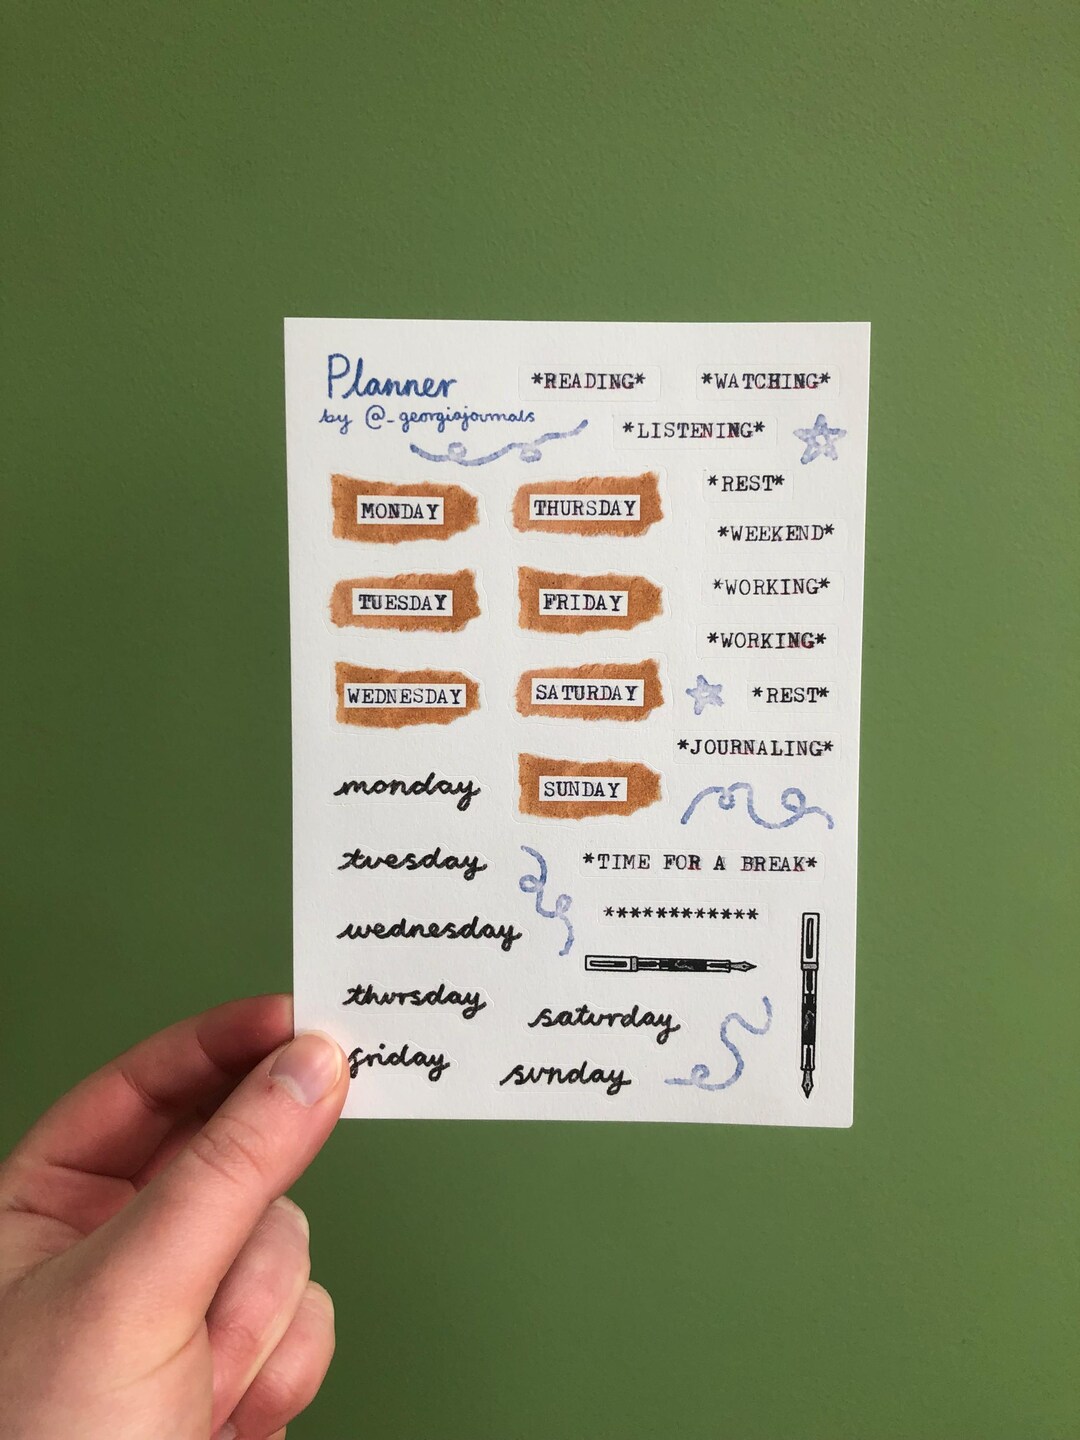 Planner
by @_georgiajournals
*READING*
*WATCHING*
*LISTENING*
*REST*
*WEEKEND*
*WORKING*
*WORKING*
*REST*
*JOURNALING*
MONDAY
THURSDAY
TUESDAY
FRIDAY
WEDNESDAY
SATURDAY
SUNDAY
monday
tuesday
wednesday
thursday
friday
saturday
sunday
*TIME FOR A BREAK*
************